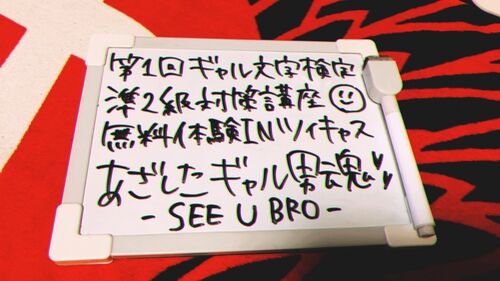 第1回ギャル文字検定
準2級対検講座☺
無料体験INツイキャス
あざしたギャル男魂
-SEE U BRO-